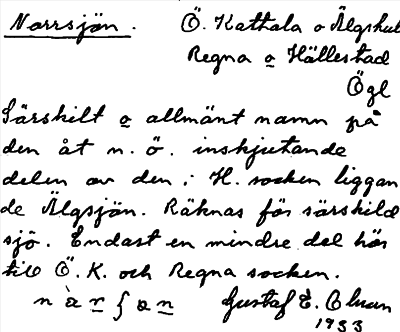 Norrsjön. Ö. Kattala o Älgshul
Regna o Hällestad
Ögl
Särskilt o allmänt namn på
den åt n. ö. inskjutande
delen av den i H. socken liggan
de Älgsjön. Räknas för särskild
sjö. Endast en mindre del hör
till Ö. K. och Regna socken.
Gustaf E. Olsson
1933